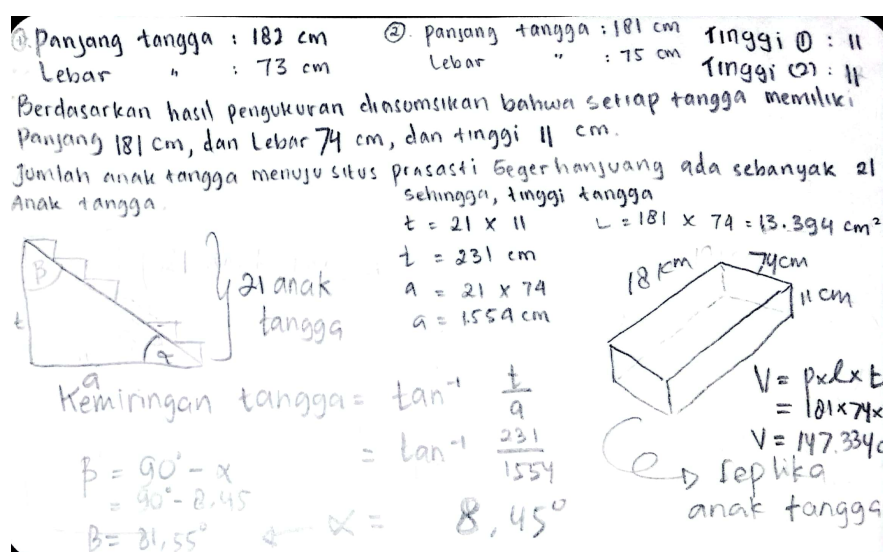 ① Panjang tangga : 182 cm
Lebar " : 73 cm
② Panjang tangga : 181 cm
Lebar " : 75 cm
Tinggi ① : 11
Tinggi (2) : 11
Berdasarkan hasil pengukuran diasumsikan bahwa setiap tangga memiliki
Panjang 181 cm, dan Lebar 74 cm, dan tinggi 11 cm.
Jumlah anak tangga menuju situs prasasti Geger hanjuang ada sebanyak 21
Anak tangga.
sehingga, tinggi tangga
t = 21 x 11
t = 231 cm
a = 21 x 74
a = 1.554 cm
L = 181 x 74 = 13.394 cm²
β
t
α
a
21 anak
tangga
18 cm
74cm
11 cm
Kemiringan tangga = tan⁻¹ t/a
= tan⁻¹ 231/1554
α = 8,45°
β = 90° - α
= 90° - 8,45
β = 81,55°
V = pxlxt
= 181x74x
V = 147.334c
Replika
anak tangga